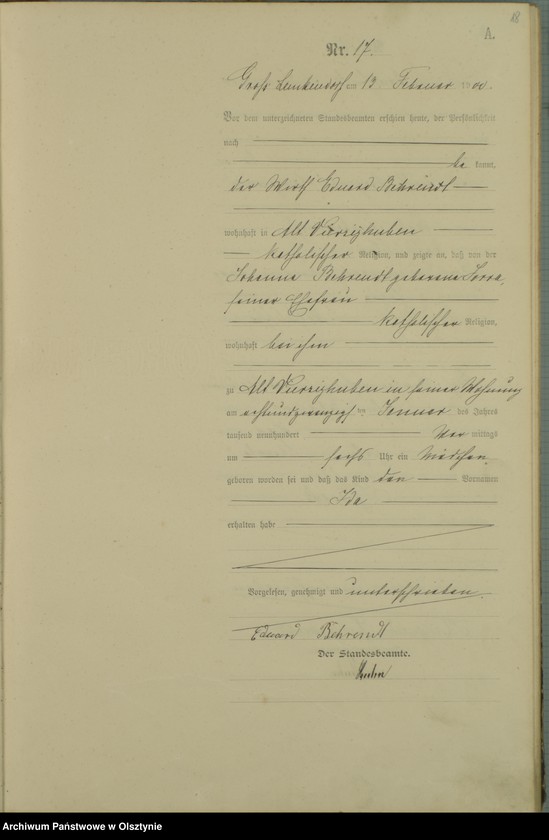 18
A.
Nr. 17.
Groß Lemkendorf am 13 Februar 1900.
Vor dem unterzeichneten Standesbeamten erschien heute, der Persönlichkeit
nach
be kannt,
der Wirth Eduard Behrendt
wohnhaft in Alt Vierzighuben
katholischer Religion, und zeigte an, daß von der
Johanna Behrendt geborene
seiner Ehefrau
katholischer Religion,
wohnhaft bei ihm
zu Alt Vierzighuben in seiner Wohnung
am achtundzwanzigsten Januar des Jahres
tausend neunhundert Vor mittags
um sechs Uhr ein Mädchen
geboren worden sei und daß das Kind den Vornamen
Ida
erhalten habe
Vorgelesen, genehmigt und unterschrieben.
Eduard Behrendt
Der Standesbeamte.
Archiwum Państwowe w Olsztynie